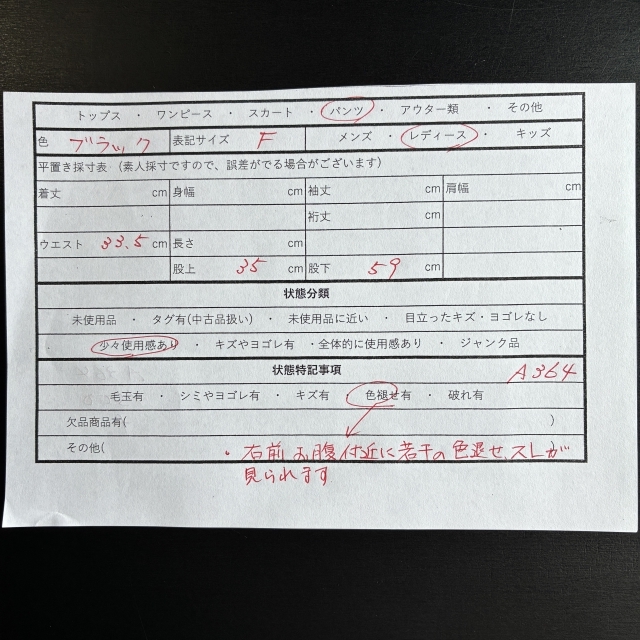 トップス ・ ワンピース ・ スカート ・ パンツ ・ アウター類 ・ その他
色 ブラック 表記サイズ F メンズ ・ レディース ・ キッズ
平置き採寸表 (素人採寸ですので、誤差がでる場合がございます)
着丈 cm 身幅 cm 袖丈 cm 肩幅 cm
裄丈 cm
ウエスト 33.5 cm 長さ cm
股上 35 cm 股下 59 cm
状態分類
未使用品 ・ タグ有(中古品扱い) ・ 未使用品に近い ・ 目立ったキズ・ヨゴレなし
少々使用感あり ・ キズやヨゴレ有 ・全体的に使用感あり ・ ジャンク品
状態特記事項 A364
毛玉有 ・ シミやヨゴレ有 ・ キズ有 ・ 色褪せ有 ・ 破れ有
欠品商品有( )
その他( ・右前 お腹付近に若干の色退せ、スレが
見られます